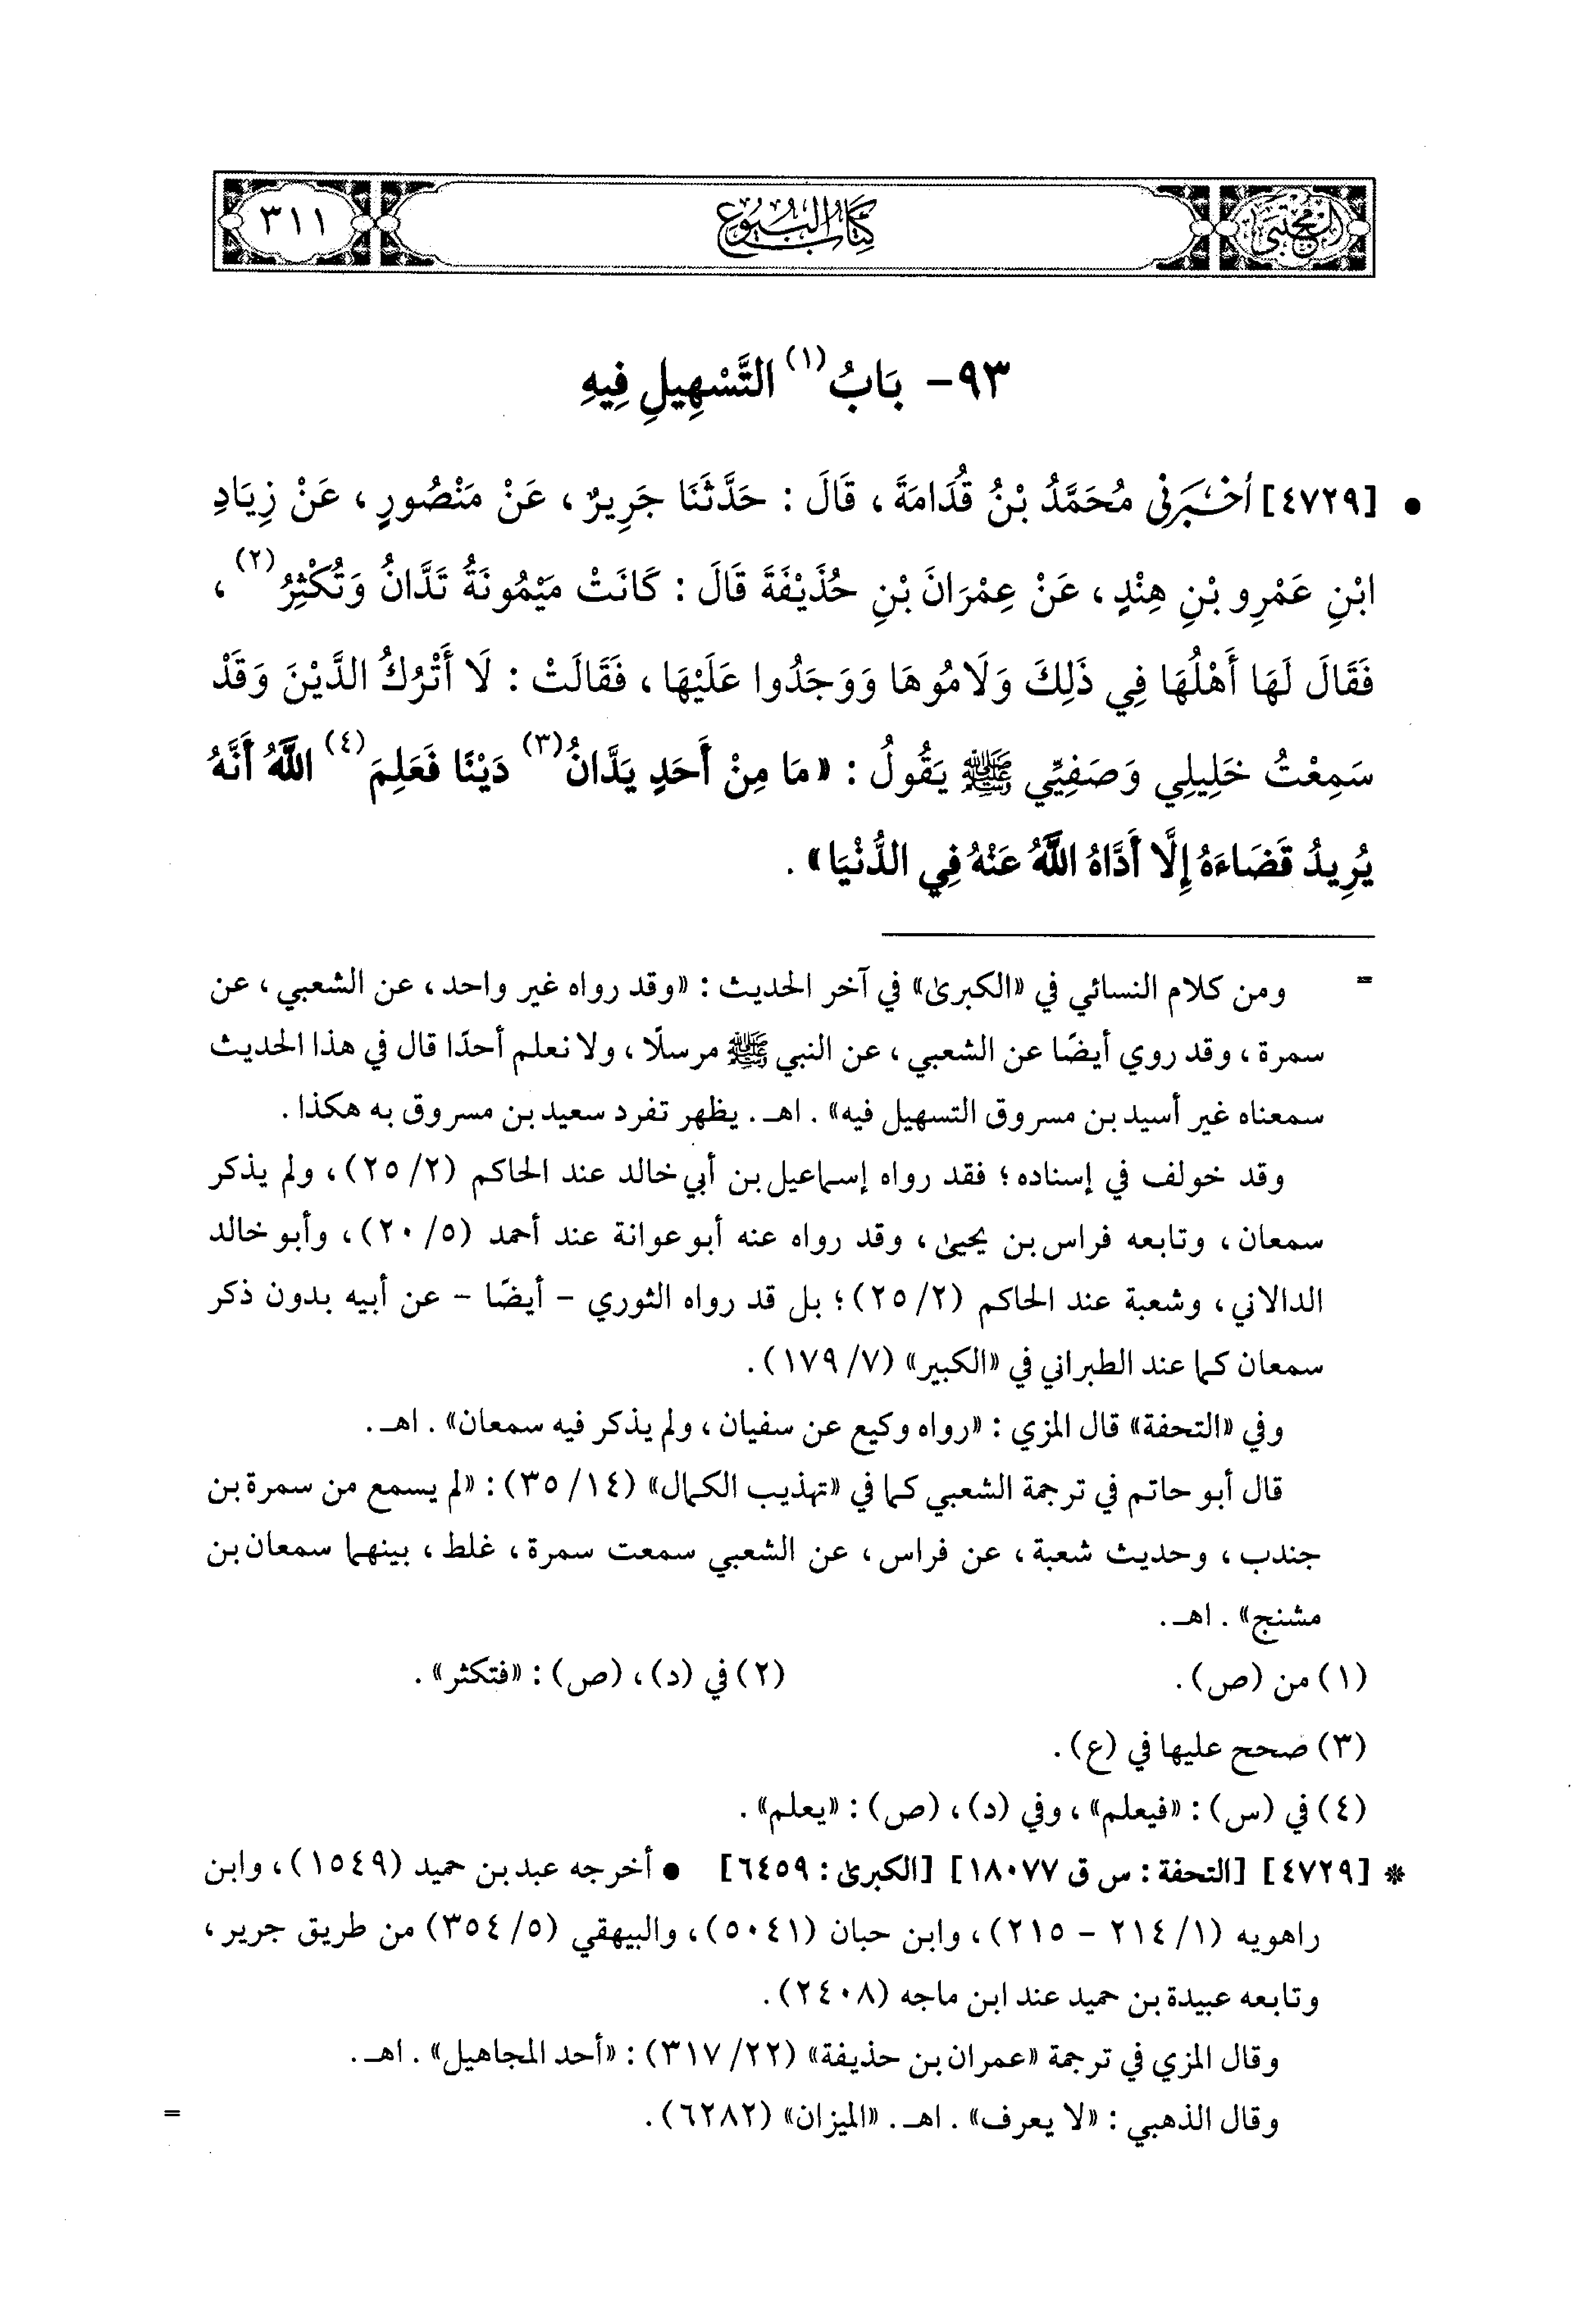 المجتبى
كتاب البيوع
٣١١
٩٣- بَابُ (١) التَّسْهِيلِ فِيهِ
• [٤٧٢٩] أَخْبَرَنِي مُحَمَّدُ بْنُ قُدَامَةَ، قَالَ: حَدَّثَنَا جَرِيرٌ، عَنْ مَنْصُورٍ، عَنْ زِيَادِ
ابْنِ عَمْرِو بْنِ هِنْدٍ، عَنْ عِمْرَانَ بْنِ حُذَيْفَةَ قَالَ: كَانَتْ مَيْمُونَةُ تَدَّانُ وَتُكْثِرُ (٢)،
فَقَالَ لَهَا أَهْلُهَا فِي ذَلِكَ وَلَامُوهَا وَوَجَدُوا عَلَيْهَا، فَقَالَتْ: لَا أَتْرُكُ الدَّيْنَ وَقَدْ
سَمِعْتُ خَلِيلِي وَصَفِيِّي ﷺ يَقُولُ: «مَا مِنْ أَحَدٍ يَدَّانُ (٣) دَيْنًا فَعَلِمَ (٤) اللَّهُ أَنَّهُ
يُرِيدُ قَضَاءَهُ إِلَّا أَدَّاهُ اللَّهُ عَنْهُ فِي الدُّنْيَا».
= ومن كلام النسائي في «الكبرى» في آخر الحديث: «وقد رواه غير واحد، عن الشعبي، عن
سمرة، وقد روي أيضًا عن الشعبي، عن النبي ﷺ مرسلًا، ولا نعلم أحدًا قال في هذا الحديث
سمعناه غير أسيد بن مسروق التسهيل فيه». اهـ. يظهر تفرد سعيد بن مسروق به هكذا.
وقد خولف في إسناده؛ فقد رواه إسماعيل بن أبي خالد عند الحاكم (٢/ ٢٥)، ولم يذكر
سمعان، وتابعه فراس بن يحيى، وقد رواه عنه أبو عوانة عند أحمد (٥/ ٢٠)، وأبو خالد
الدالاني، وشعبة عند الحاكم (٢/ ٢٥)؛ بل قد رواه الثوري - أيضًا - عن أبيه بدون ذكر
سمعان كما عند الطبراني في «الكبير» (٧/ ١٧٩).
وفي «التحفة» قال المزي: «رواه وكيع عن سفيان، ولم يذكر فيه سمعان». اهـ.
قال أبو حاتم في ترجمة الشعبي كما في «تهذيب الكمال» (١٤/ ٣٥): «لم يسمع من سمرة بن
جندب، وحديث شعبة، عن فراس، عن الشعبي سمعت سمرة، غلط، بينهما سمعان بن
مشنج». اهـ.
(١) من (ص). (٢) في (د)، (ص): «فتكثر».
(٣) صحح عليها في (ع).
(٤) في (س): «فيعلم»، وفي (د)، (ص): «يعلم».
* [٤٧٢٩] [التحفة: س ق ١٨٠٧٧] [الكبرى: ٦٤٥٩] • أخرجه عبد بن حميد (١٥٤٩)، وابن
راهويه (١/ ٢١٤ - ٢١٥)، وابن حبان (٥٠٤١)، والبيهقي (٥/ ٣٥٤) من طريق جرير،
وتابعه عبيدة بن حميد عند ابن ماجه (٢٤٠٨).
وقال المزي في ترجمة «عمران بن حذيفة» (٢٢/ ٣١٧): «أحد المجاهيل». اهـ.
وقال الذهبي: «لا يعرف». اهـ. «الميزان» (٦٢٨٢). =